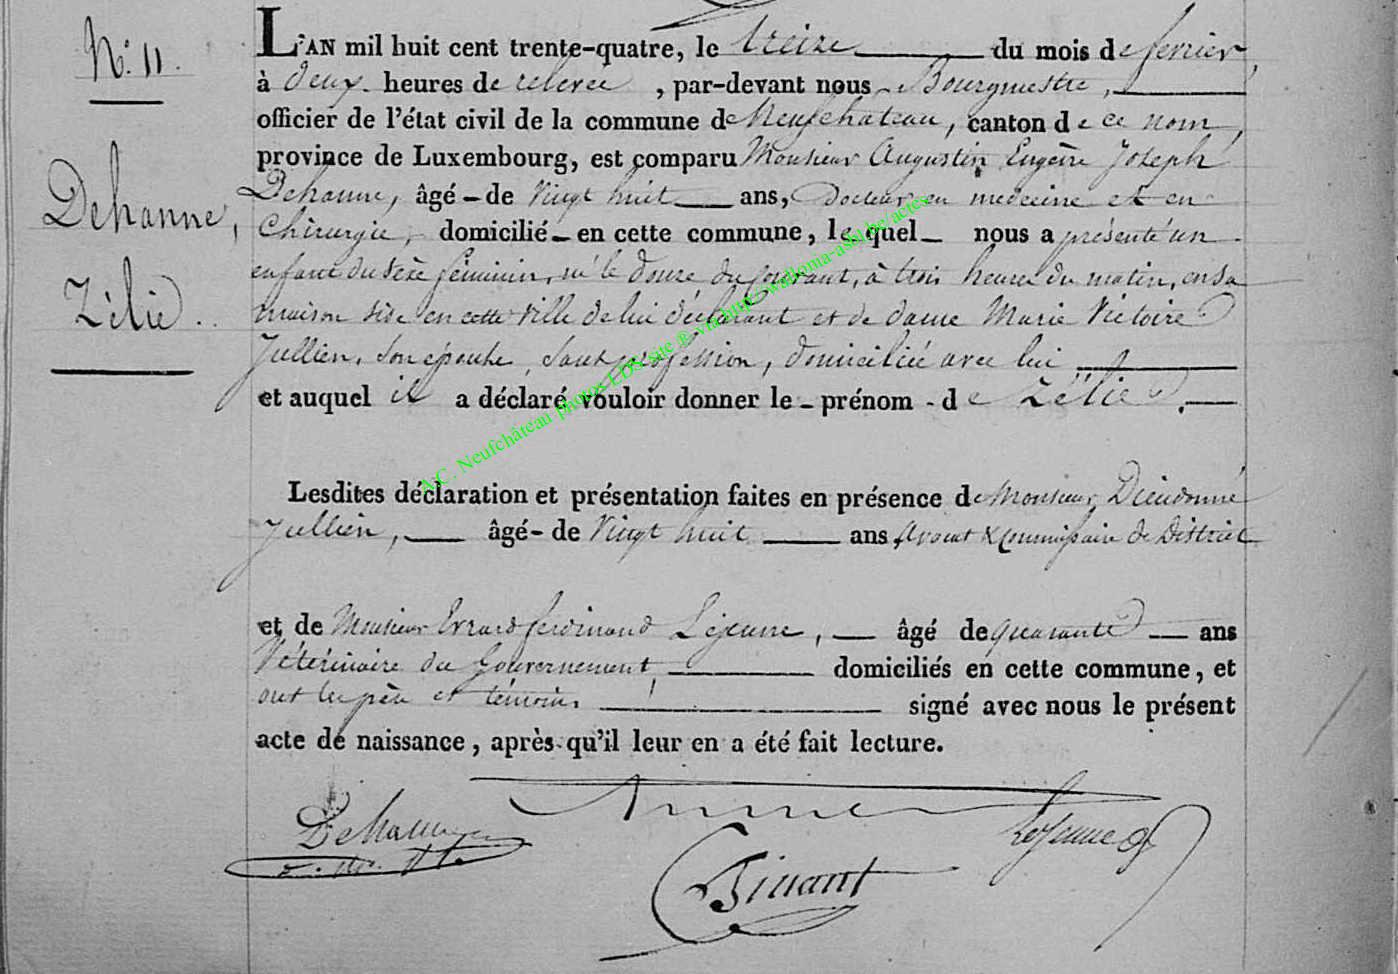 N.° 11.
Dehanne,
Zélie.
L'AN mil huit cent trente-quatre, le treize du mois de fevrier,
à deux heures de relevée, par-devant nous Bourgmestre,
officier de l'état civil de la commune de Neufchateau, canton de ce nom,
province de Luxembourg, est comparu Monsieur Augustin Eugène Joseph
Dehanne, âgé de vingt huit ans, Docteur en medecine et en
Chirurgie, domicilié en cette commune, lequel nous a présenté un
enfant du sèxe féminin, né le douze du courant, à trois heures du matin, en sa
maison sise en cette ville de lui déclarant et de dame Marie Victoire
Jullien, son épouse, sans profession, domiciliée avec lui
et auquel il a déclaré vouloir donner le prénom de Zélie.
Lesdites déclaration et présentation faites en présence de Monsieur Dieudonné
Jullien, âgé de vingt huit ans Avocat & Commissaire de District
et de Monsieur Evrard ferdinand Lejeune, âgé de quarante ans
Vétérinaire du Gouvernement, domiciliés en cette commune, et
ont les père et témoins signé avec nous le présent
acte de naissance, après qu'il leur en a été fait lecture.
Dehanne
Lejeune
Dinant
A.C. Neufchâteau photos LDS site @ via http://walloma-asbl.be/actes